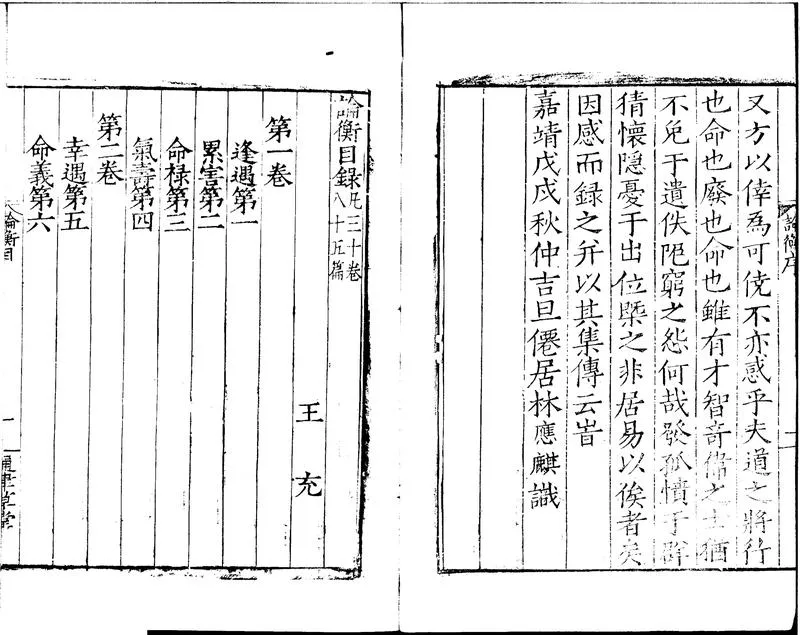 論衡序
二
又方以倖為可僥不亦惑乎夫道之將行
也命也廢也命也雖有才智奇儒之士猶
不免于遺佚阨窮之怨何哉發孤憤于辭
猜懷隱憂于出位槩之非居易以俟者矣
因感而録之并以其集傳云旹
嘉靖戊戌秋仲吉旦僊居林應麒識
論衡目錄凡三十卷
八十五篇
王充
第一卷
逢遇第一
累害第二
命祿第三
氣壽第四
第二卷
幸遇第五
命義第六
論衡目
一
通津草堂